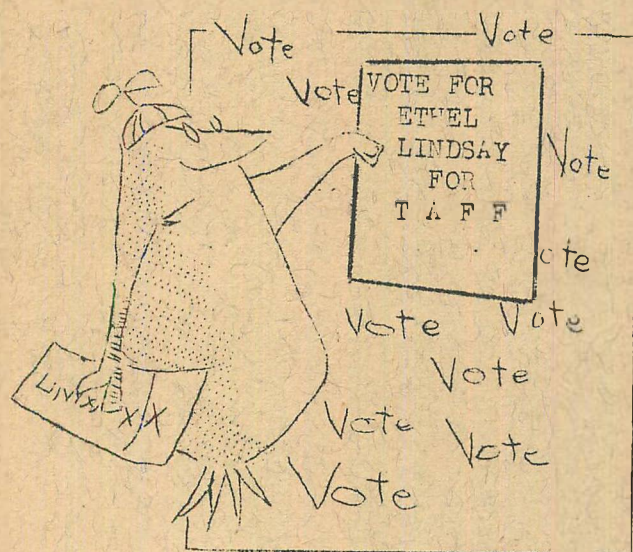 Vote
Vote
Vote
VOTE FOR
ETHEL
LINDSAY
FOR
T A F F
Vote
ote
Vote
Vote
Vote
Vote
Vote
Vote
XX